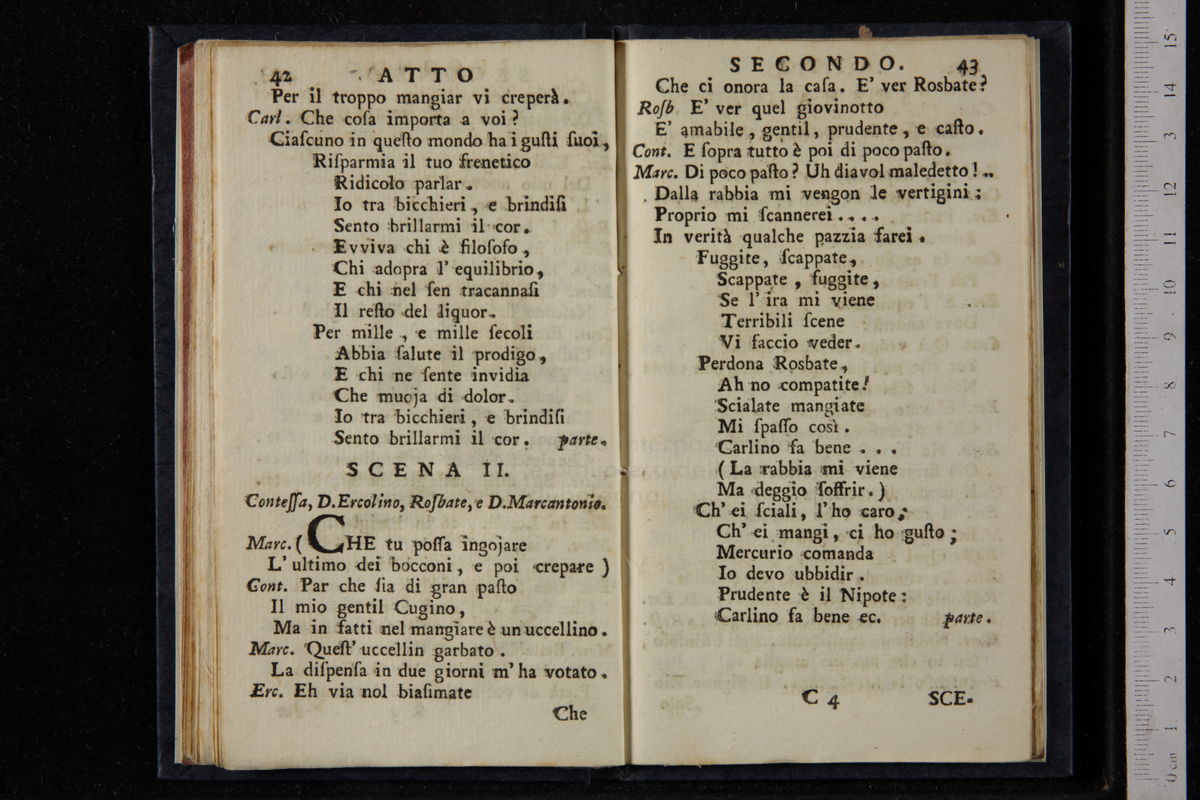 42 ATTO
Per il troppo mangiar vi creperà.
Carl. Che coſa importa a voi?
Ciaſcuno in queſto mondo ha i guſti ſuoi,
Riſparmia il tuo frenetico
Ridicolo parlar.
Io tra bicchieri, e brindiſi
Sento brillarmi il cor.
Evviva chi è filoſofo,
Chi adopra l' equilibrio,
E chi nel ſen tracannaſi
Il reſto del liquor.
Per mille, e mille ſecoli
Abbia ſalute il prodigo,
E chi ne ſente invidia
Che muoja di dolor.
Io tra bicchieri, e brindiſi
Sento brillarmi il cor. parte.
SCENA II.
Conteſſa, D. Ercolino, Roſbate, e D. Marcantonio.
Marc. (CHE tu poſſa ingojare
L' ultimo dei bocconi, e poi crepare)
Cont. Par che ſia di gran paſto
Il mio gentil Cugino,
Ma in fatti nel mangiare è un uccellino.
Marc. Queſt' uccellin garbato.
La diſpenſa in due giorni m' ha votato.
Erc. Eh via nol biaſimate
Che
SECONDO. 43
Che ci onora la caſa. E' ver Rosbate?
Roſb E' ver quel giovinotto
E' amabile, gentil, prudente, e caſto.
Cont. E ſopra tutto è poi di poco paſto.
Marc. Di poco paſto? Uh diavol maledetto!..
Dalla rabbia mi vengon le vertigini;
Proprio mi ſcannerei....
In verità qualche pazzia farei.
Fuggite, ſcappate,
Scappate, fuggite,
Se l' ira mi viene
Terribili ſcene
Vi faccio veder.
Perdona Rosbate,
Ah no compatite!
Scialate mangiate
Mi ſpaſſo così.
Carlino fa bene...
(La rabbia mi viene
Ma deggio ſoffrir.)
Ch' ei ſciali, l' ho caro;
Ch' ei mangi, ci ho guſto;
Mercurio comanda
Io devo ubbidir.
Prudente è il Nipote:
Carlino fa bene ec. parte.
C 4 SCE-